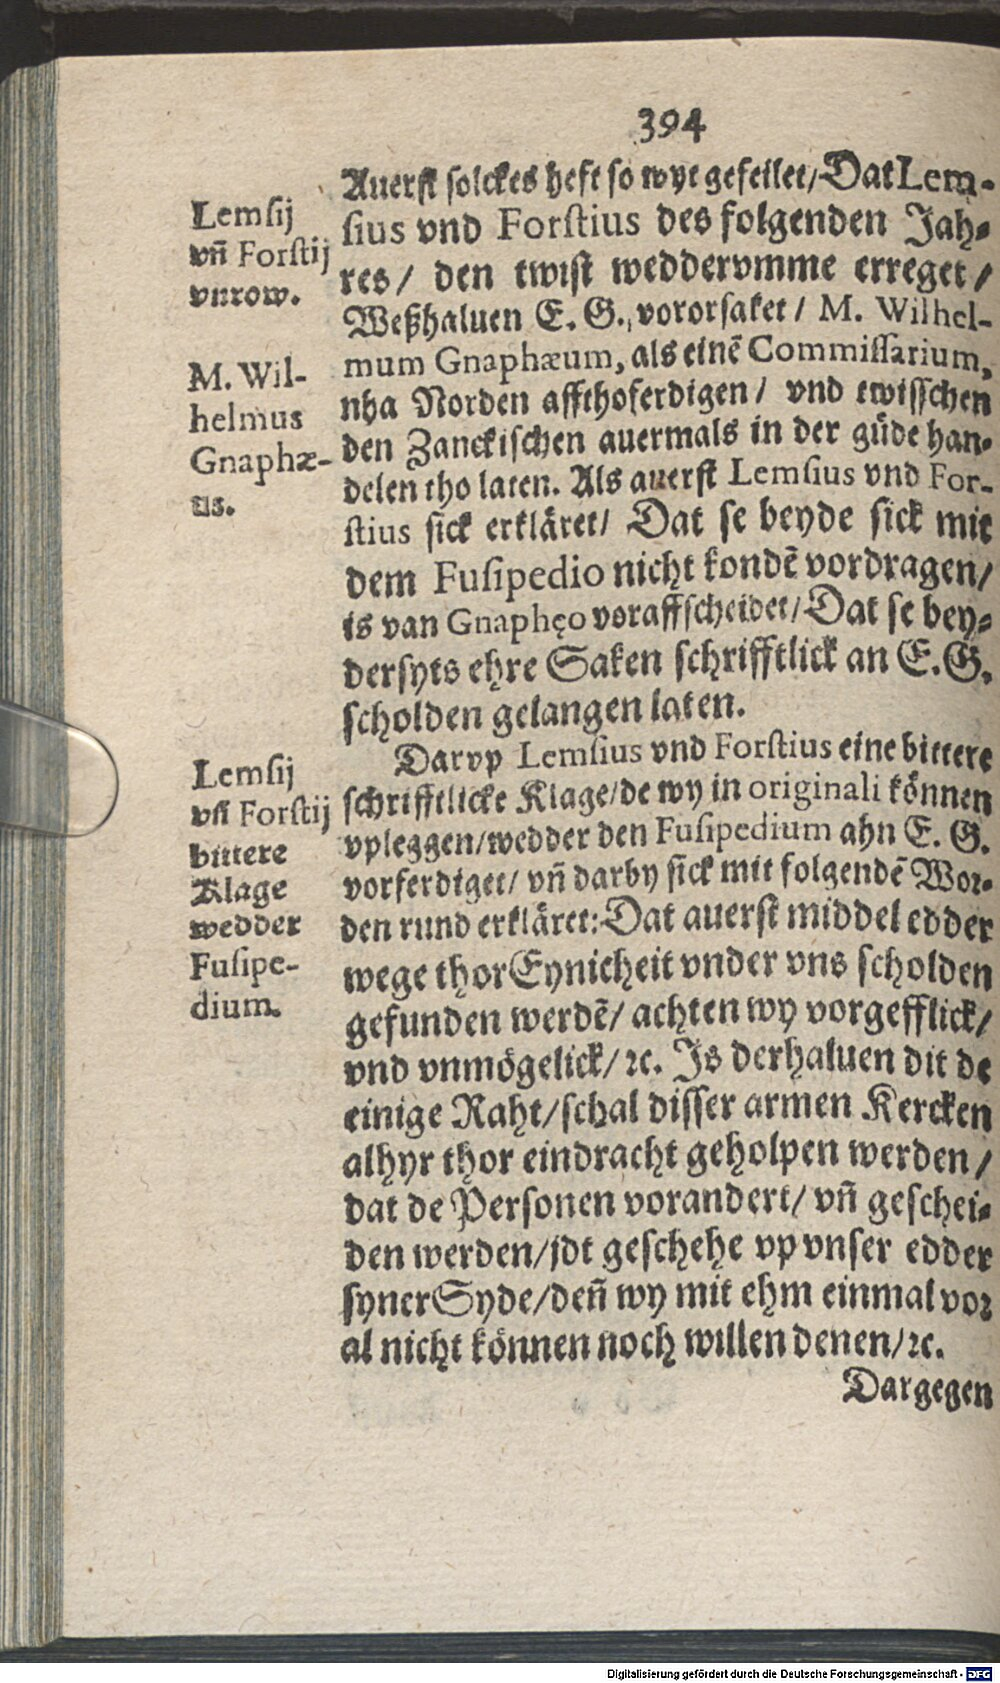 394
Auerst solckes heft so wyt gefeilet/ Dat Lem-
sius vnd Forstius des folgenden Jah-
res/ den twist weddervmme erreget/
Weßhaluen E. G., vororsaket/ M. Wilhel-
mum Gnaphæum, als einē Commissarium,
nha Norden affthoferdigen/ vnd twisschen
den Zanckischen auermals in der güde han-
delen tho laten. Als auerst Lemsius vnd For-
stius sick erkläret/ Dat se beyde sick mit
dem Fusipedio nicht kondē vordragen/
is van Gnaphęo voraffscheidet/ Dat se bey-
dersyts ehre Saken schrifftlick an E. G.
scholden gelangen laten.
Darvp Lemsius vnd Forstius eine bittere
schrifftlicke Klage/ de wy in originali können
vpleggen/ wedder den Fusipedium ahn E. G.
vorferdiget/ vn̄ darby sick mit folgendē Wor-
den rund erkläret: Dat auerst middel edder
wege thor Eynicheit vnder vns scholden
gefunden werdē/ achten wy vorgefflick/
vnd vnmögelick/ ꝛc. Is derhaluen dit de
einige Raht/ schal disser armen Kercken
alhyr thor eindracht geholpen werden/
dat de Personen vorandert/ vn̄ geschei-
den werden/ jdt geschehe vp vnser edder
syner Syde/ den̄ wy mit ehm einmal vor
al nicht können noch willen denen/ ꝛc.
Dargegen
Lemsij
vn̄ Forstij
vnrow.
M. Wil-
helmus
Gnaphæ-
us.
Lemsij
vn̄ Forstij
bittere
Klage
wedder
Fusipe-
dium.
Digitalisierung gefördert durch die Deutsche Forschungsgemeinschaft - DFG